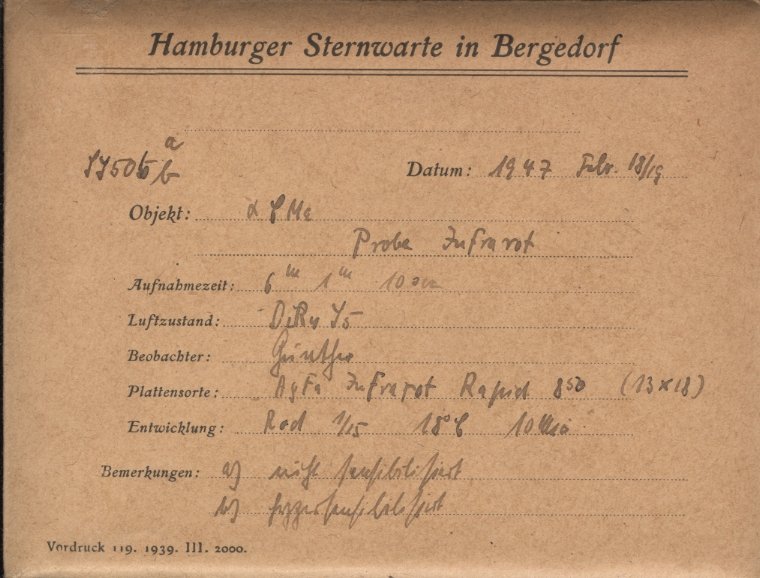 Hamburger Sternwarte in Bergedorf
a
b
Datum: 1947 Febr. 18/19
Objekt: α CMa
Probe Infrarot
Aufnahmezeit: 6 m 1 m 10 sec
Luftzustand:
Beobachter: Günther
Plattensorte: Agfa Infrarot Rapid 850 (13 x 18)
Entwicklung: Rod 1/15 18°C 10 Min
Bemerkungen: a) nicht sensibilisiert
b) hypersensibilisiert
Vordruck 119. 1939. III. 2000.